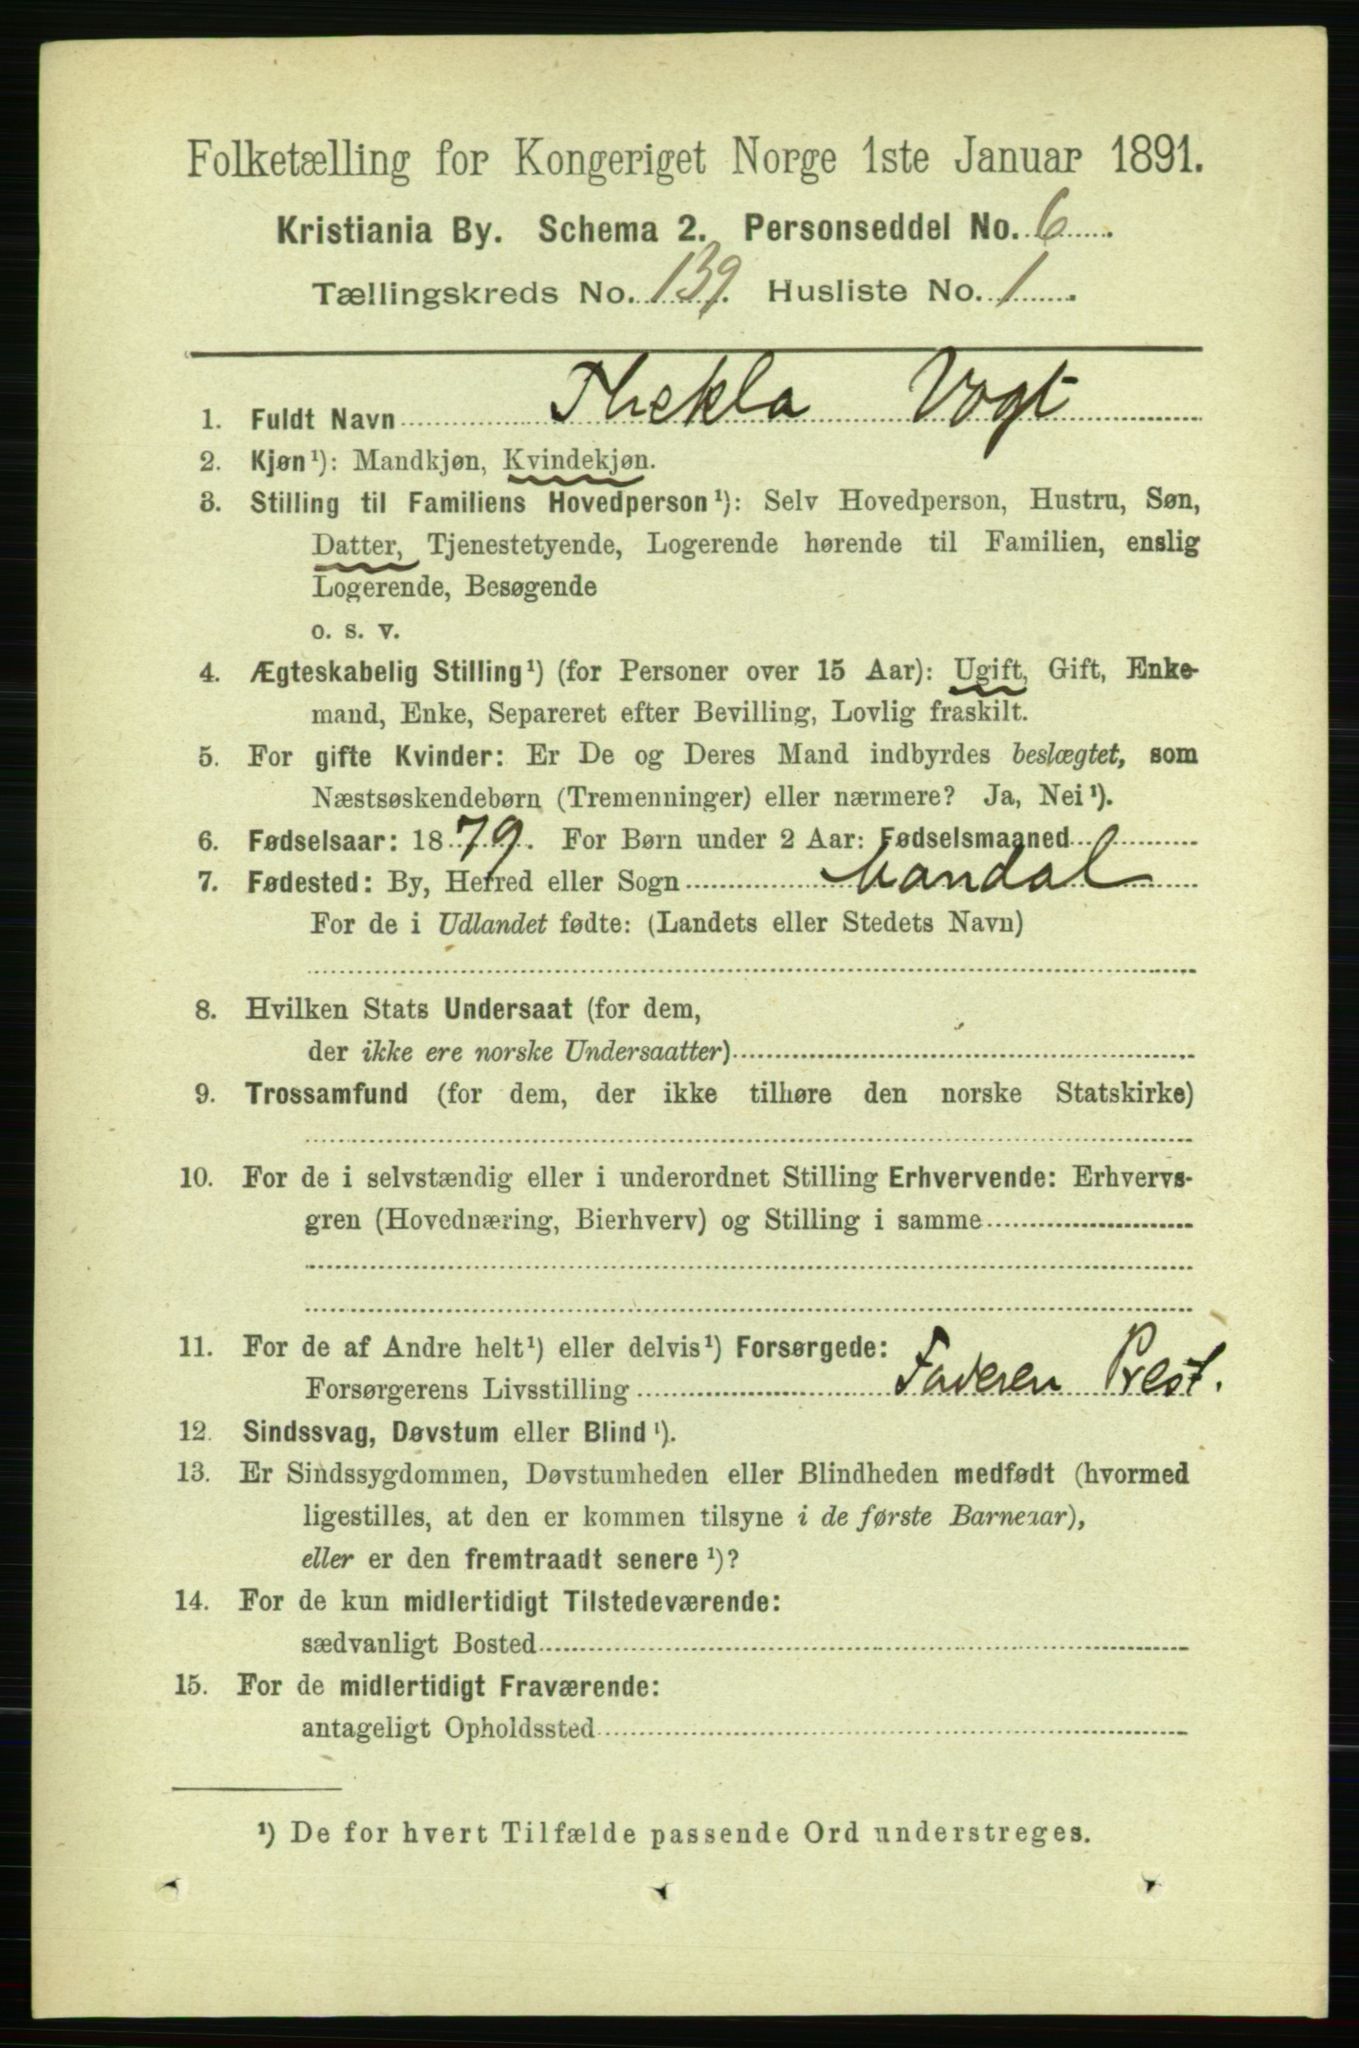 Folketælling for Kongeriget Norge 1ste Januar 1891.
Kristiania By. Schema 2. Personseddel No. 6
Tællingskreds No. 139. Husliste No. 1
1. Fuldt Navn Thekla Vogt
2. Kjøn¹): Mandkjøn, Kvindekjøn.
3. Stilling til Familiens Hovedperson¹): Selv Hovedperson, Hustru, Søn,
Datter, Tjenestetyende, Logerende hørende til Familien, enslig
Logerende, Besøgende
o. s. v.
4. Ægteskabelig Stilling¹) (for Personer over 15 Aar): Ugift, Gift, Enke-
mand, Enke, Separeret efter Bevilling, Lovlig fraskilt.
5. For gifte Kvinder: Er De og Deres Mand indbyrdes beslægtet, som
Næstsøskendebørn (Tremenninger) eller nærmere? Ja, Nei¹).
6. Fødselsaar: 1879. For Børn under 2 Aar: Fødselsmaaned
7. Fødested: By, Herred eller Sogn Mandal
For de i Udlandet fødte: (Landets eller Stedets Navn)
8. Hvilken Stats Undersaat (for dem,
der ikke ere norske Undersaatter)
9. Trossamfund (for dem, der ikke tilhøre den norske Statskirke)
10. For de i selvstændig eller i underordnet Stilling Erhvervende: Erhvervs-
gren (Hovednæring, Bierhverv) og Stilling i samme
11. For de af Andre helt¹) eller delvis¹) Forsørgede:
Forsørgerens Livsstilling Faderen Prest.
12. Sindssvag, Døvstum eller Blind¹).
13. Er Sindssygdommen, Døvstumheden eller Blindheden medfødt (hvormed
ligestilles, at den er kommen tilsyne i de første Barneaar),
eller er den fremtraadt senere¹)?
14. For de kun midlertidigt Tilstedeværende:
sædvanligt Bosted
15. For de midlertidigt Fraværende:
antageligt Opholdssted
¹) De for hvert Tilfælde passende Ord understreges.